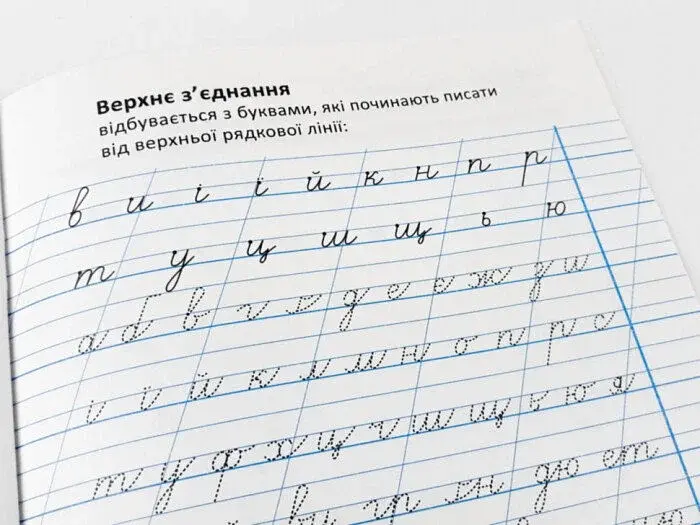 Верхнє з’єднання
відбувається з буквами, які починають писати
від верхньої рядкової лінії:
в и і ї й к н п р
т у ц ш щ ь ю
а б в г ґ д е є ж з и
і ї й к л м н о п р с
т у ф х ц ч ш щ ь ю я
дю ет